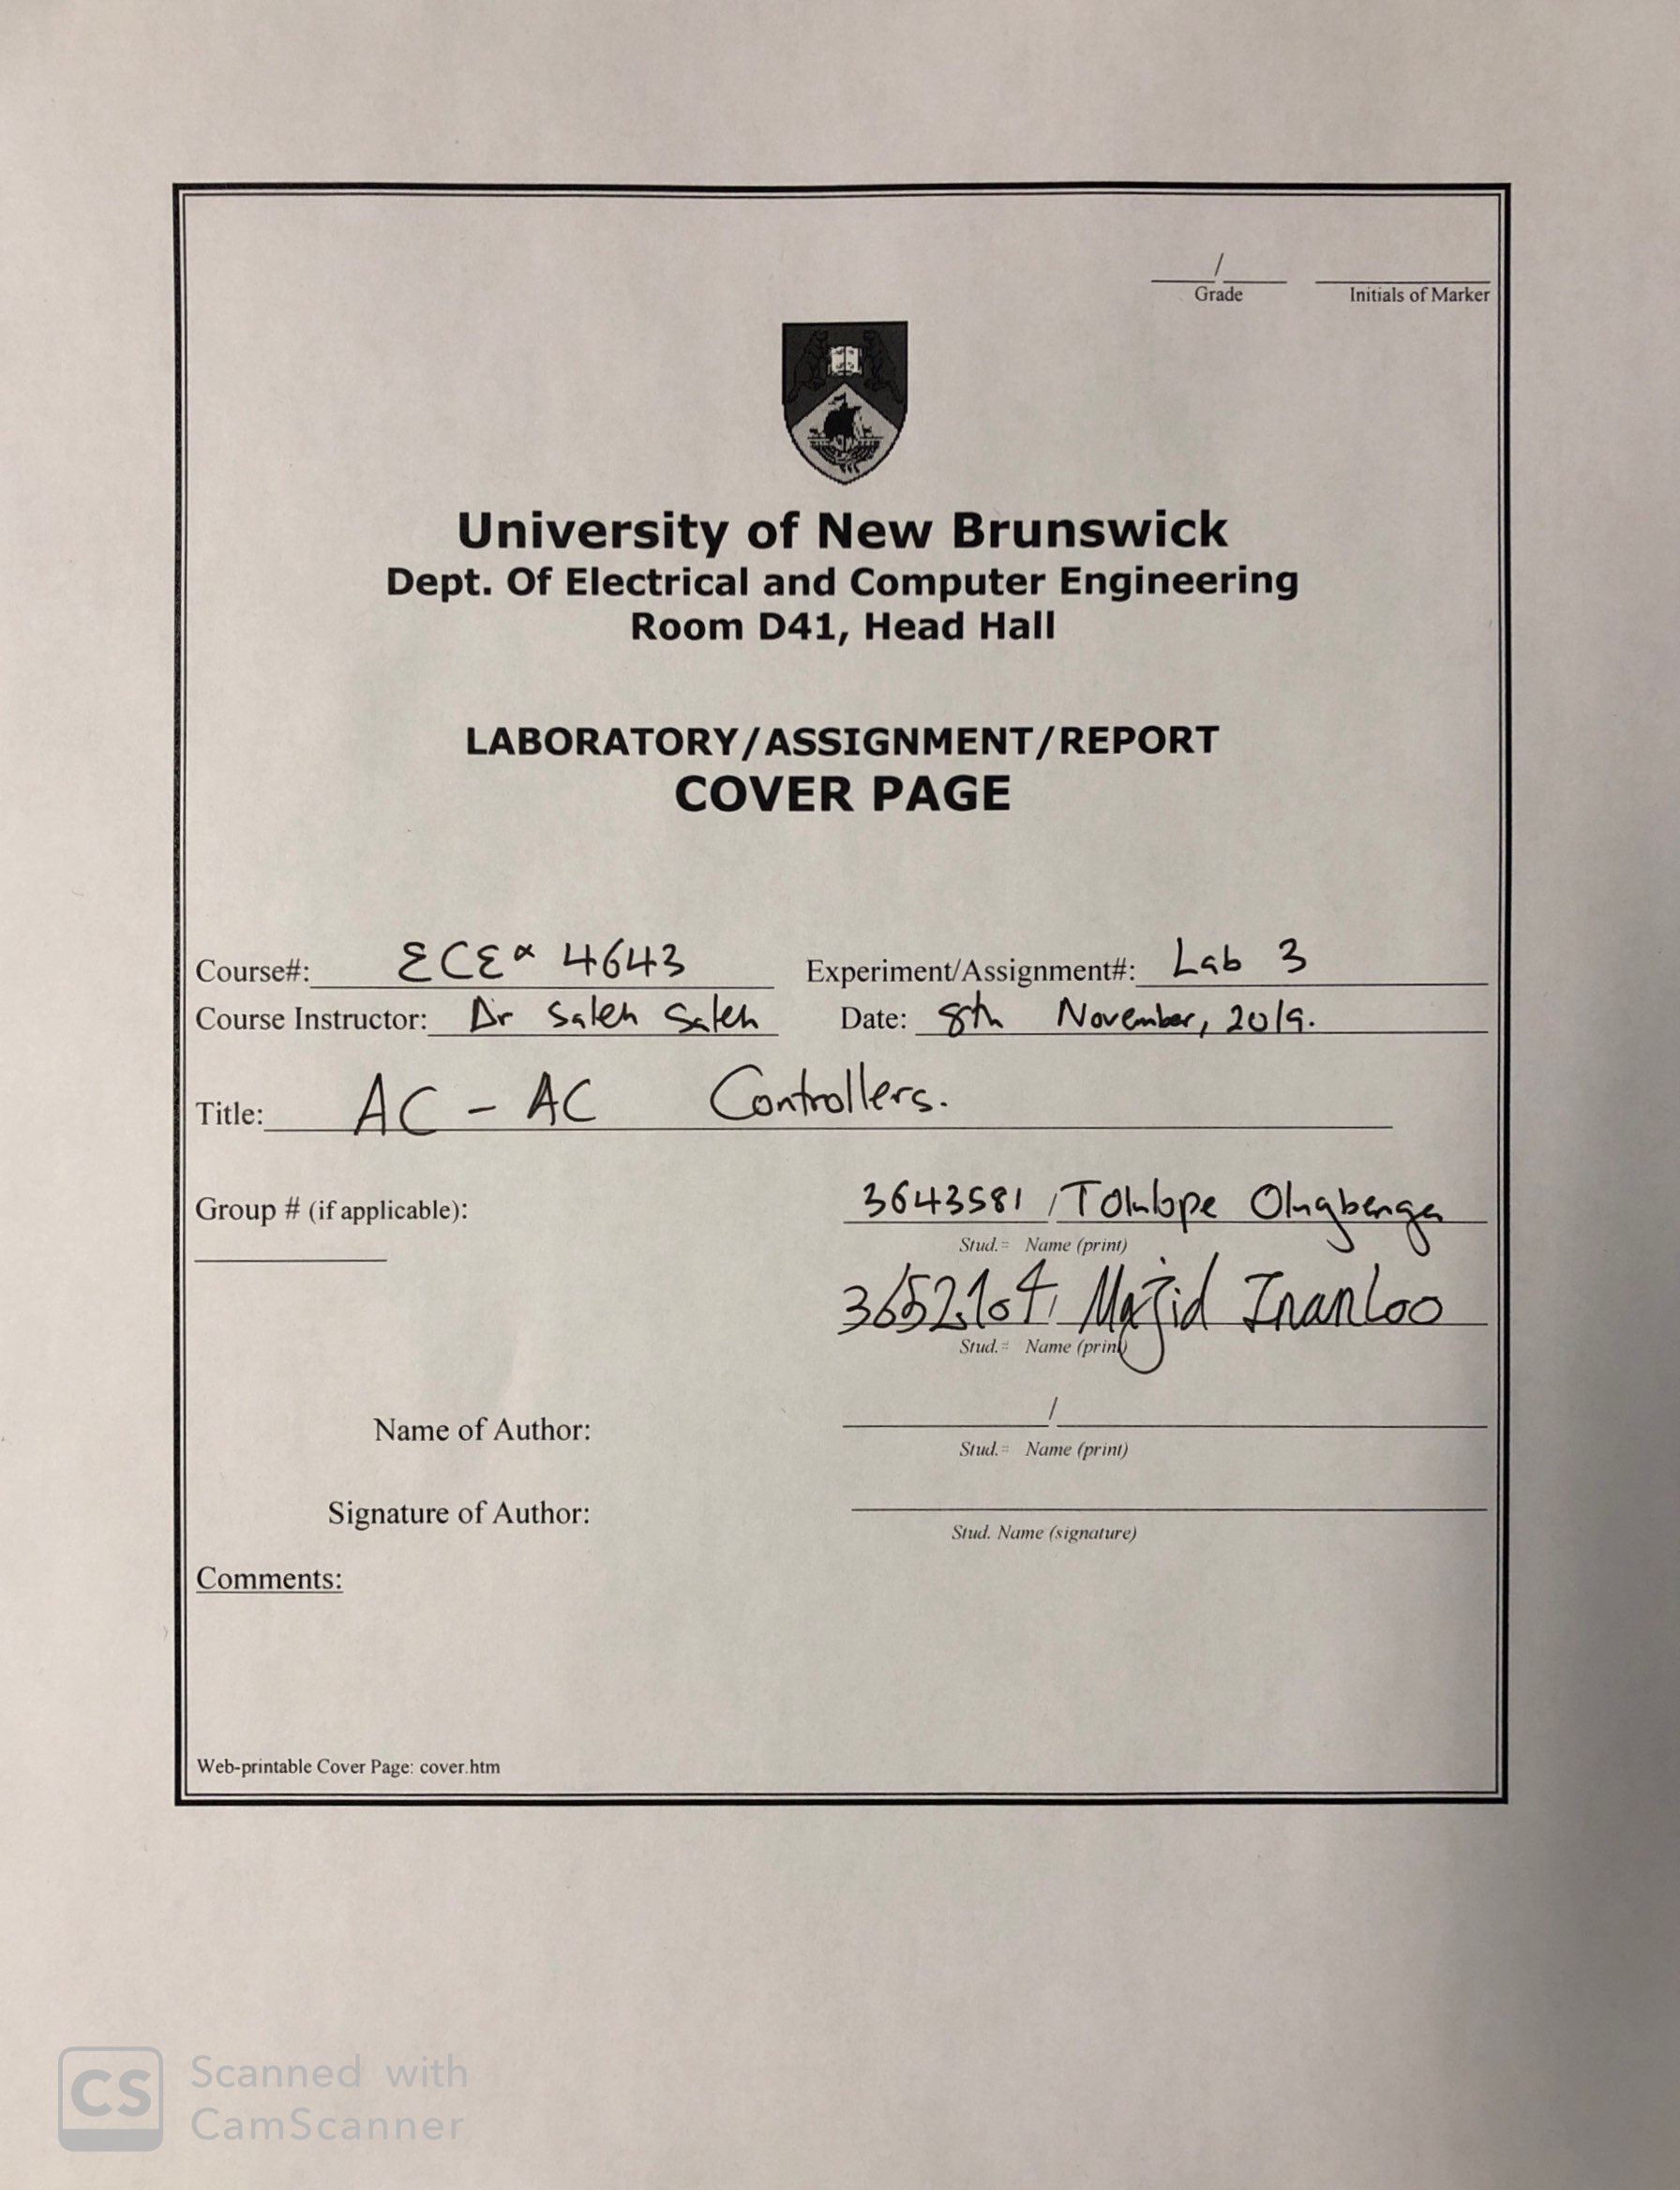 /
Grade Initials of Marker
University of New Brunswick
Dept. Of Electrical and Computer Engineering
Room D41, Head Hall
LABORATORY/ASSIGNMENT/REPORT
COVER PAGE
Course#: ECE 4643 Experiment/Assignment#: Lab 3
Course Instructor: Dr Saleh Saleh Date: 8th November, 2019.
Title: AC - AC Controllers.
Group # (if applicable): 3643581 / Tolulope Olugbenga
Stud.# Name (print)
3652104, Majid Inanloo
Stud.# Name (print)
Name of Author: /
Stud.# Name (print)
Signature of Author:
Stud. Name (signature)
Comments:
Web-printable Cover Page: cover.htm
CS Scanned with
CamScanner